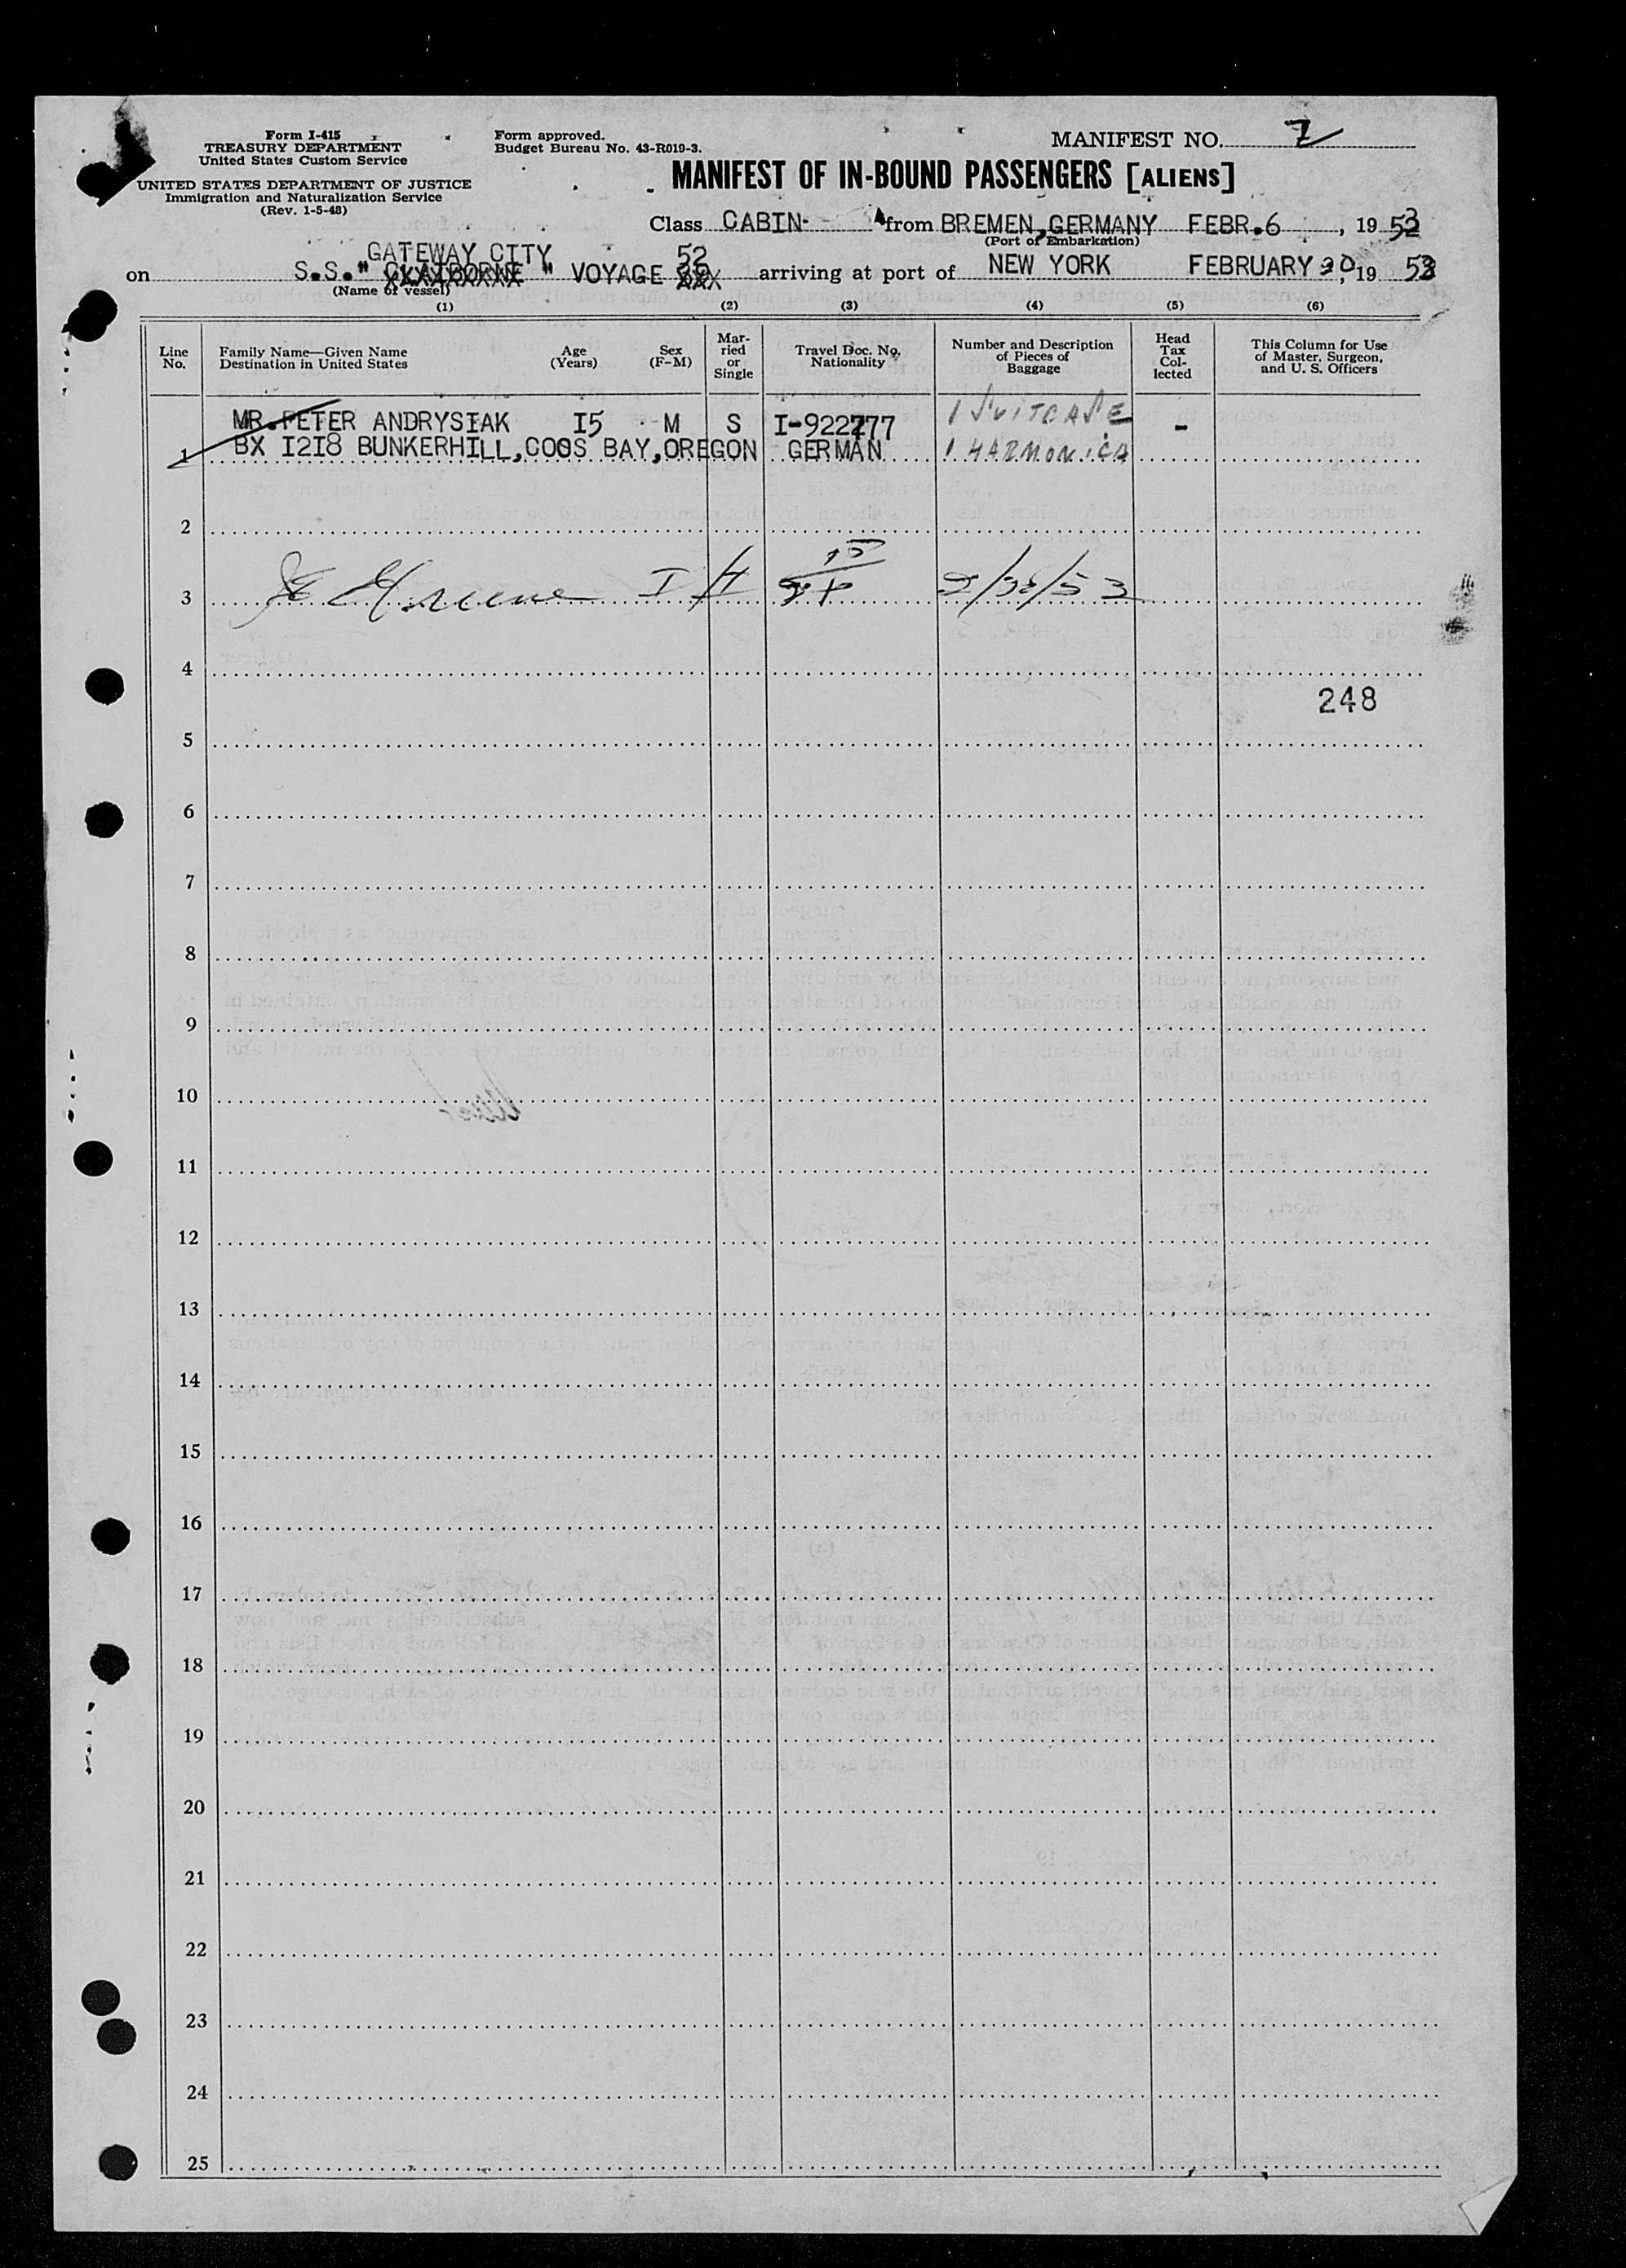 Form I-415
TREASURY DEPARTMENT
United States Custom Service
UNITED STATES DEPARTMENT OF JUSTICE
Immigration and Naturalization Service
(Rev. 1-5-48)
Form approved.
Budget Bureau No. 43-R019-3.
MANIFEST NO. 7
MANIFEST OF IN-BOUND PASSENGERS [ALIENS]
Class CABIN from BREMEN, GERMANY FEBR.6, 1953
(Port of Embarkation)
GATEWAY CITY 52
on S.S." CLAIBORNE " VOYAGE arriving at port of NEW YORK FEBRUARY 20, 1953
(Name of vessel)
(1) (2) (3) (4) (5) (6)
Line No. Family Name—Given Name Destination in United States Age (Years) Sex (F-M) Mar-ried or Single Travel Doc. No. Nationality Number and Description of Pieces of Baggage Head Tax Col-lected This Column for Use of Master, Surgeon, and U. S. Officers
MR.PETER ANDRYSIAK I5 M S I-922777 1 SUITCASE -
1 BX I2I8 BUNKERHILL,COOS BAY,OREGON GERMAN 1 HARMONICA
2
3 Greene
4
248
5
6
7
8
9
10
11
12
13
14
15
16
17
18
19
20
21
22
23
24
25